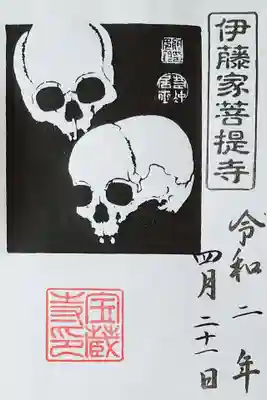 伊藤家菩提寺
令和二年
四月二十一日
宝蔵
寺印